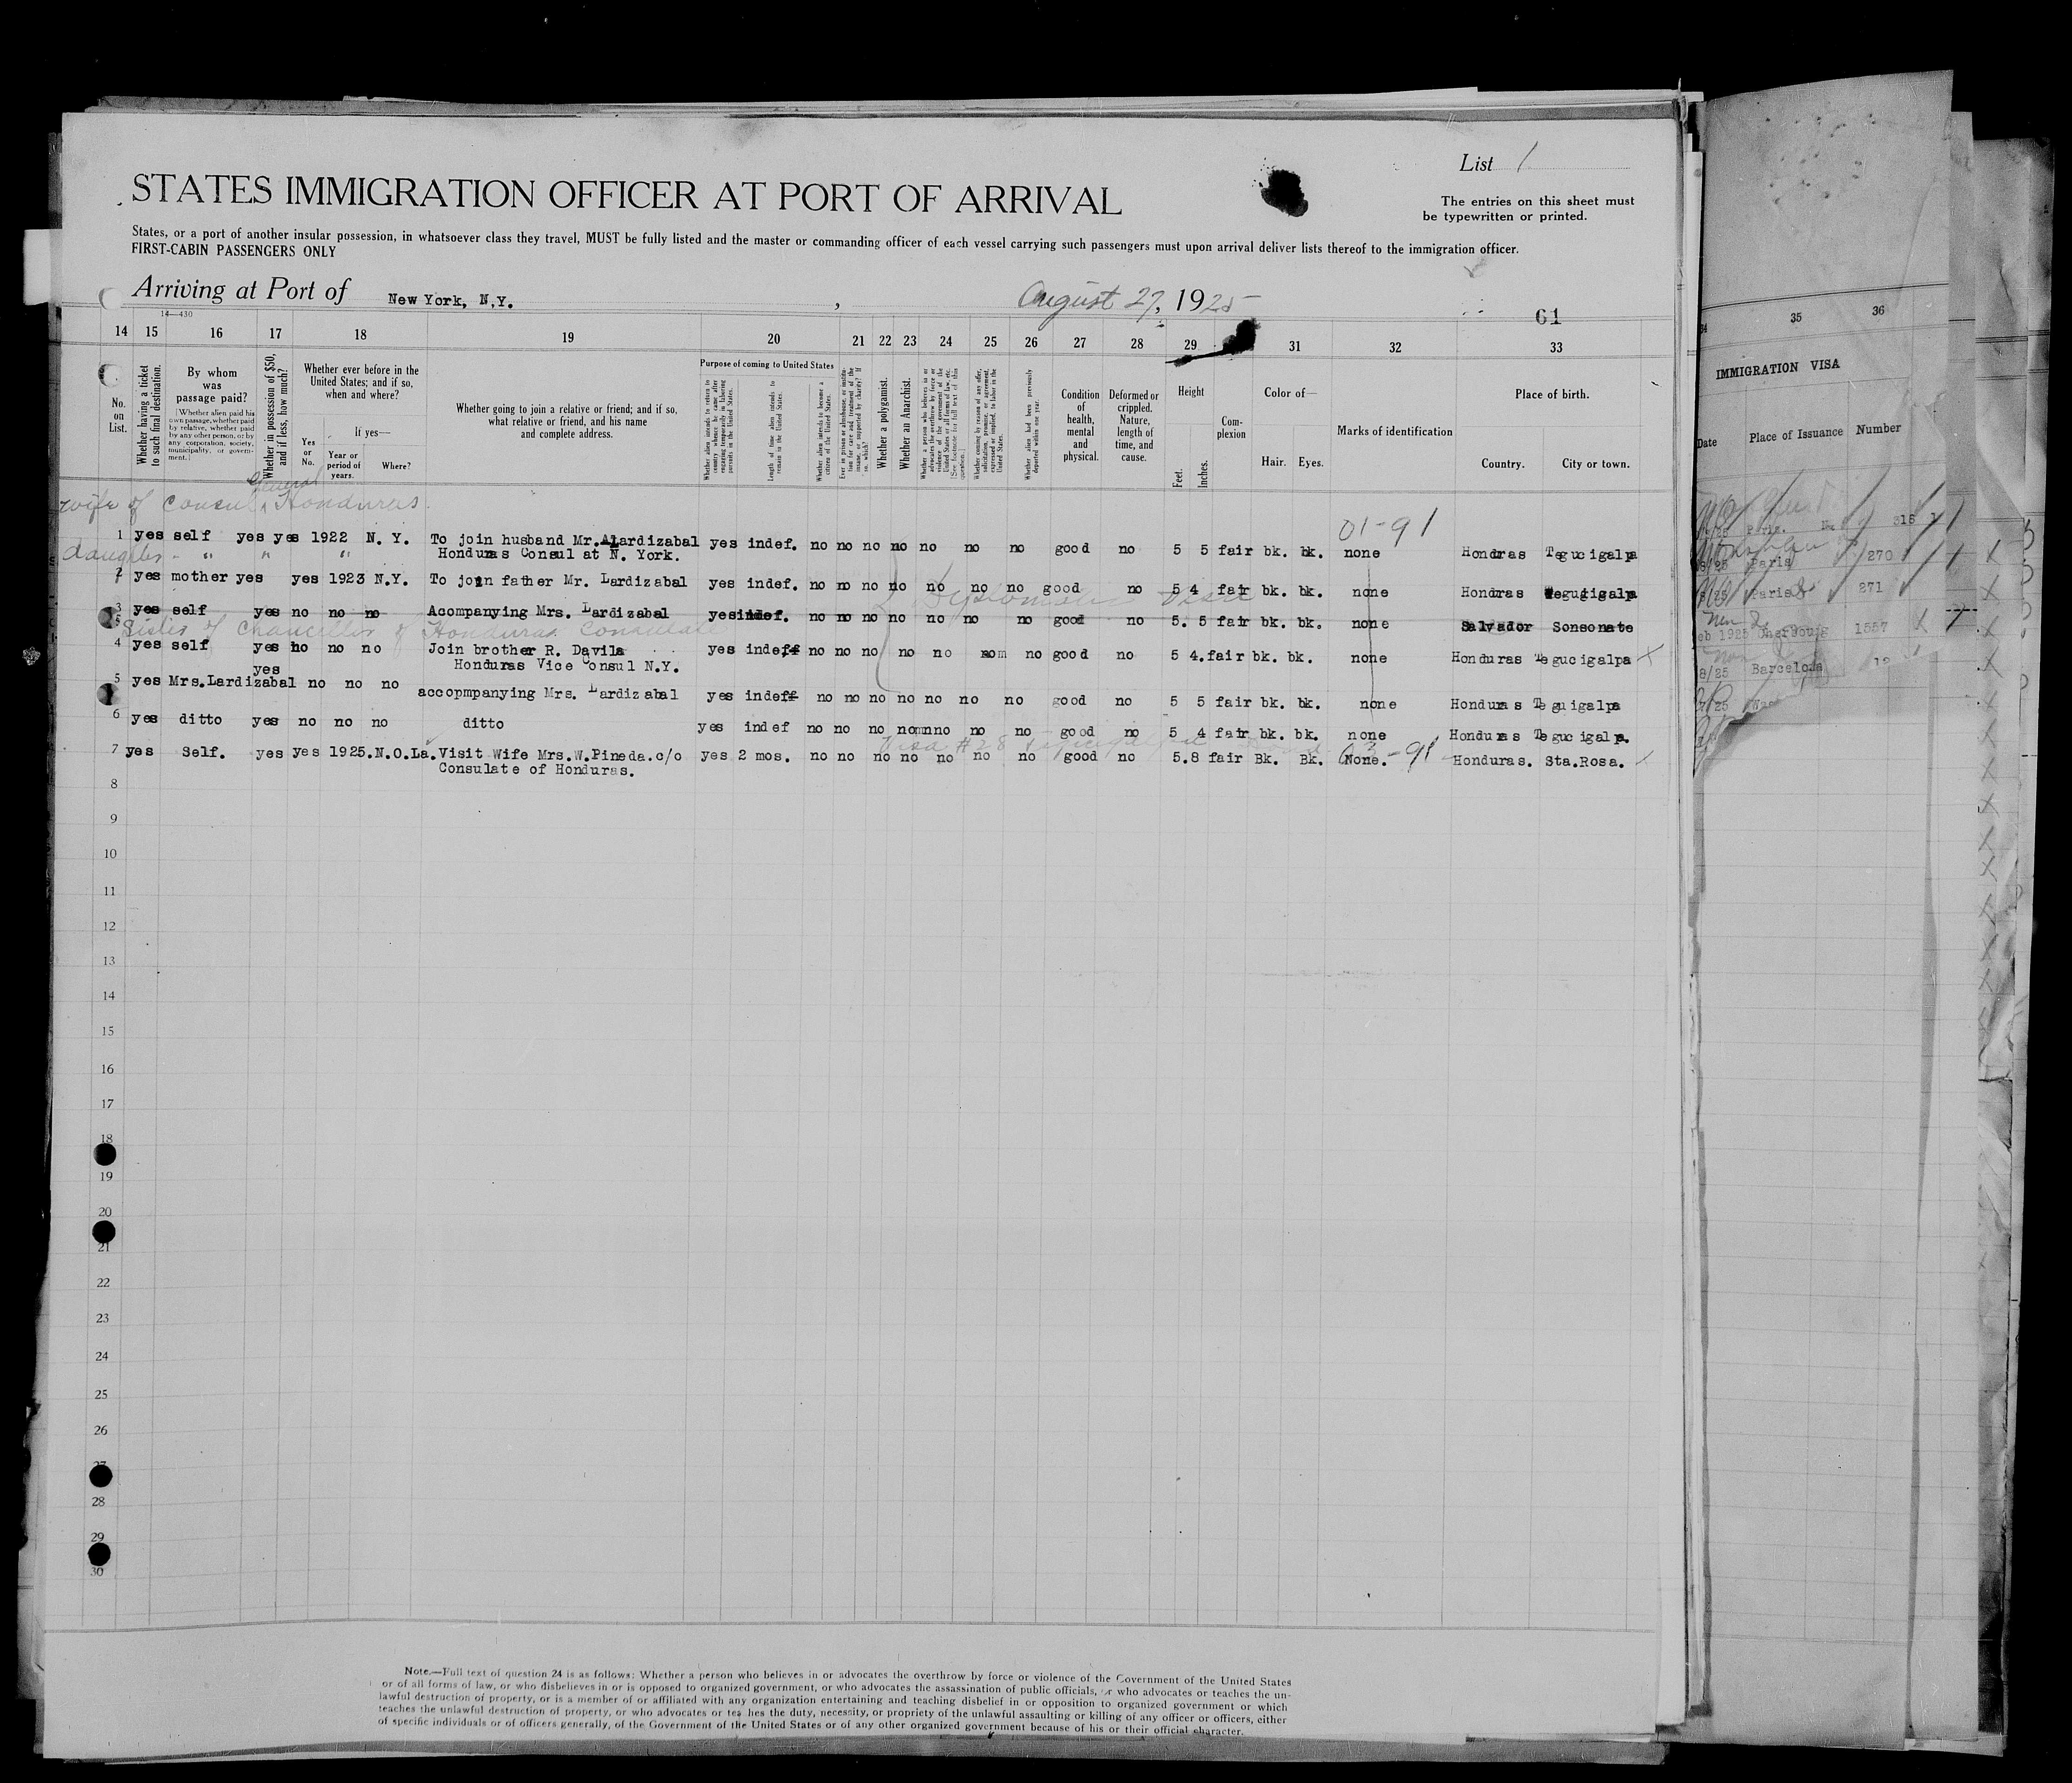 List 1
STATES IMMIGRATION OFFICER AT PORT OF ARRIVAL
The entries on this sheet must
be typewritten or printed.
States, or a port of another insular possession, in whatsoever class they travel, MUST be fully listed and the master or commanding officer of each vessel carrying such passengers must upon arrival deliver lists thereof to the immigration officer.
FIRST-CABIN PASSENGERS ONLY
Arriving at Port of New York, N.Y. , August 27, 1925
14—430
61
14 15 16 17 18 19 20 21 22 23 24 25 26 27 28 29 31 32 33
No. on List.
Whether having a ticket to such final destination.
By whom was passage paid?
[Whether alien paid his own passage, whether paid by relative, whether paid by any other person, or by any corporation, society, municipality, or government.]
Whether in possession of $50, and if less, how much?
Whether ever before in the United States; and if so, when and where?
Yes or No.
If yes—
Year or period of years.
Where?
Whether going to join a relative or friend; and if so, what relative or friend, and his name and complete address.
Purpose of coming to United States
Whether alien intends to return to country whence he came after engaging temporarily in laboring pursuits in the United States.
Length of time alien intends to remain in the United States.
Whether alien intends to become a citizen of the United States.
Ever in prison or almshouse, or institution for care and treatment of the insane, or supported by charity? If so, which?
Whether a polygamist.
Whether an Anarchist.
Whether a person who believes in or advocates the overthrow by force or violence of the government of the United States or all forms of law, etc. [See footnote for full text of this question.]
Whether coming by reason of any offer, solicitation, promise, or agreement, expressed or implied, to labor in the United States.
Whether alien had been previously deported within one year.
Condition of health, mental and physical.
Deformed or crippled. Nature, length of time, and cause.
Height
Feet.
Inches.
Complexion
Color of—
Hair. Eyes.
Marks of identification
Place of birth.
Country. City or town.
wife of Consul General Honduras.
01-91
1 yes self yes yes 1922 N. Y. To join husband Mr. Lardizabal yes indef. no no no no no no no good no 5 5 fair bk. bk. none Hondras Tegucigalpa
Honduras Consul at N. York.
daughter - " " "
2 yes mother yes yes 1923 N.Y. To join father Mr. Lardizabal yes indef. no no no no no no no good no 5 4 fair bk. bk. none Hondras Tegucigalpa
Diplomatic Visa
3 yes self yes no no no Acompanying Mrs. Lardizabal yes indef. no no no no no no no good no 5. 5 fair bk. bk. none Salvador Sonsonate
Sister of Chancellor of Honduras Consulate
4 yes self yes no no no Join brother R. Davila yes indeff no no no no no nom no good no 5 4. fair bk. bk. none Honduras Tegucigalpa
Honduras Vice Consul N.Y.
yes
5 yes Mrs.Lardizabal no no no accopmpanying Mrs. Lardizabal yes indeff no no no no no no no good no 5 5 fair bk. bk. none Honduras Teguigalpa
6 yes ditto yes no no no ditto yes indef no no no nomnno no no good no 5 4 fair bk. bk. none Honduras Tegucigalpa.
Visa #28
03-91
7 yes Self. yes yes 1925.N.O.La. Visit Wife Mrs.W.Pineda.c/o yes 2 mos. no no no no no no no good no 5.8 fair Bk. Bk. None. Honduras. Sta.Rosa.
Consulate of Honduras.
8
9
10
11
12
13
14
15
16
17
18
19
20
21
22
23
24
25
26
27
28
29
30
Note.—Full text of question 24 is as follows: Whether a person who believes in or advocates the overthrow by force or violence of the Government of the United States
or of all forms of law, or who disbelieves in or is opposed to organized government, or who advocates the assassination of public officials, or who advocates or teaches the un-
lawful destruction of property, or is a member of or affiliated with any organization entertaining and teaching disbelief in or opposition to organized government or which
teaches the unlawful destruction of property, or who advocates or teaches the duty, necessity, or propriety of the unlawful assaulting or killing of any officer or officers, either
of specific individuals or of officers generally, of the Government of the United States or of any other organized government because of his or their official character.
35 36
IMMIGRATION VISA
Date Place of Issuance Number
Paris. 315
Paris 270
Paris 271
1925 Cherbourg 1557
8/25 Barcelona